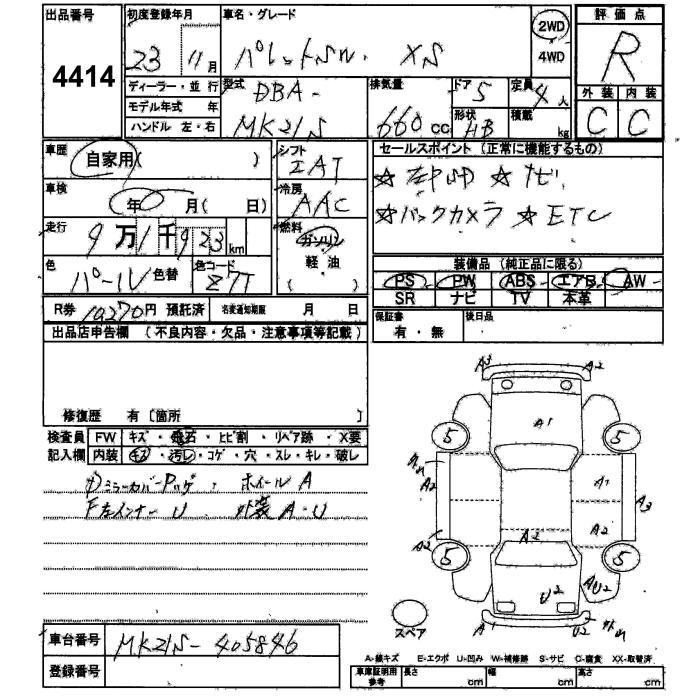 出品番号
4414
初度登録年月
23 11月
車名・グレード
パレットSW. XS
2WD
4WD
評価点
R
外装 内装
C C
ディーラー・並行
モデル年式 年
ハンドル 左・右
型式
DBA-
MK21S
排気量
660cc
ドア 5
形状 HB
定員 4人
積載 kg
車歴
自家用( )
車検
年 0 月( 日)
走行
9万1千923km
色
パール 色替
色コード
Z7T
シフト
IAT
冷房
AAC
燃料
ガソリン
軽油
( )
セールスポイント (正常に機能するもの)
☆ ☆ナビ
☆バックカメラ ☆ETC
装備品 (純正品に限る)
PS PW ABS エアB AW
SR ナビ TV 本革
R券 10270円 預託済 名変通知期限 月 日
保証書
有・無
後日品
出品店申告欄 (不良内容・欠品・注意事項等記載)
修復歴 有〔箇所 〕
検査員
記入欄
FW キズ・飛石・ヒビ割・リペア跡・X要
内装 キズ・汚レ・コゲ・穴・スレ・キレ・破レ
ミラーカバー ホイールA
F左インナーU 外装A・U
A3 A2
A1
5 5
A2 A1 A3
A2 A2
5 5
U2 AU2
A1 U2
スペア
A-線キズ E-エクボ U-凹み W-補修跡 S-サビ C-腐食 XX-取替済
車台番号
MK21S-405846
登録番号
車庫証明用参考 長さ cm 幅 cm 高さ cm